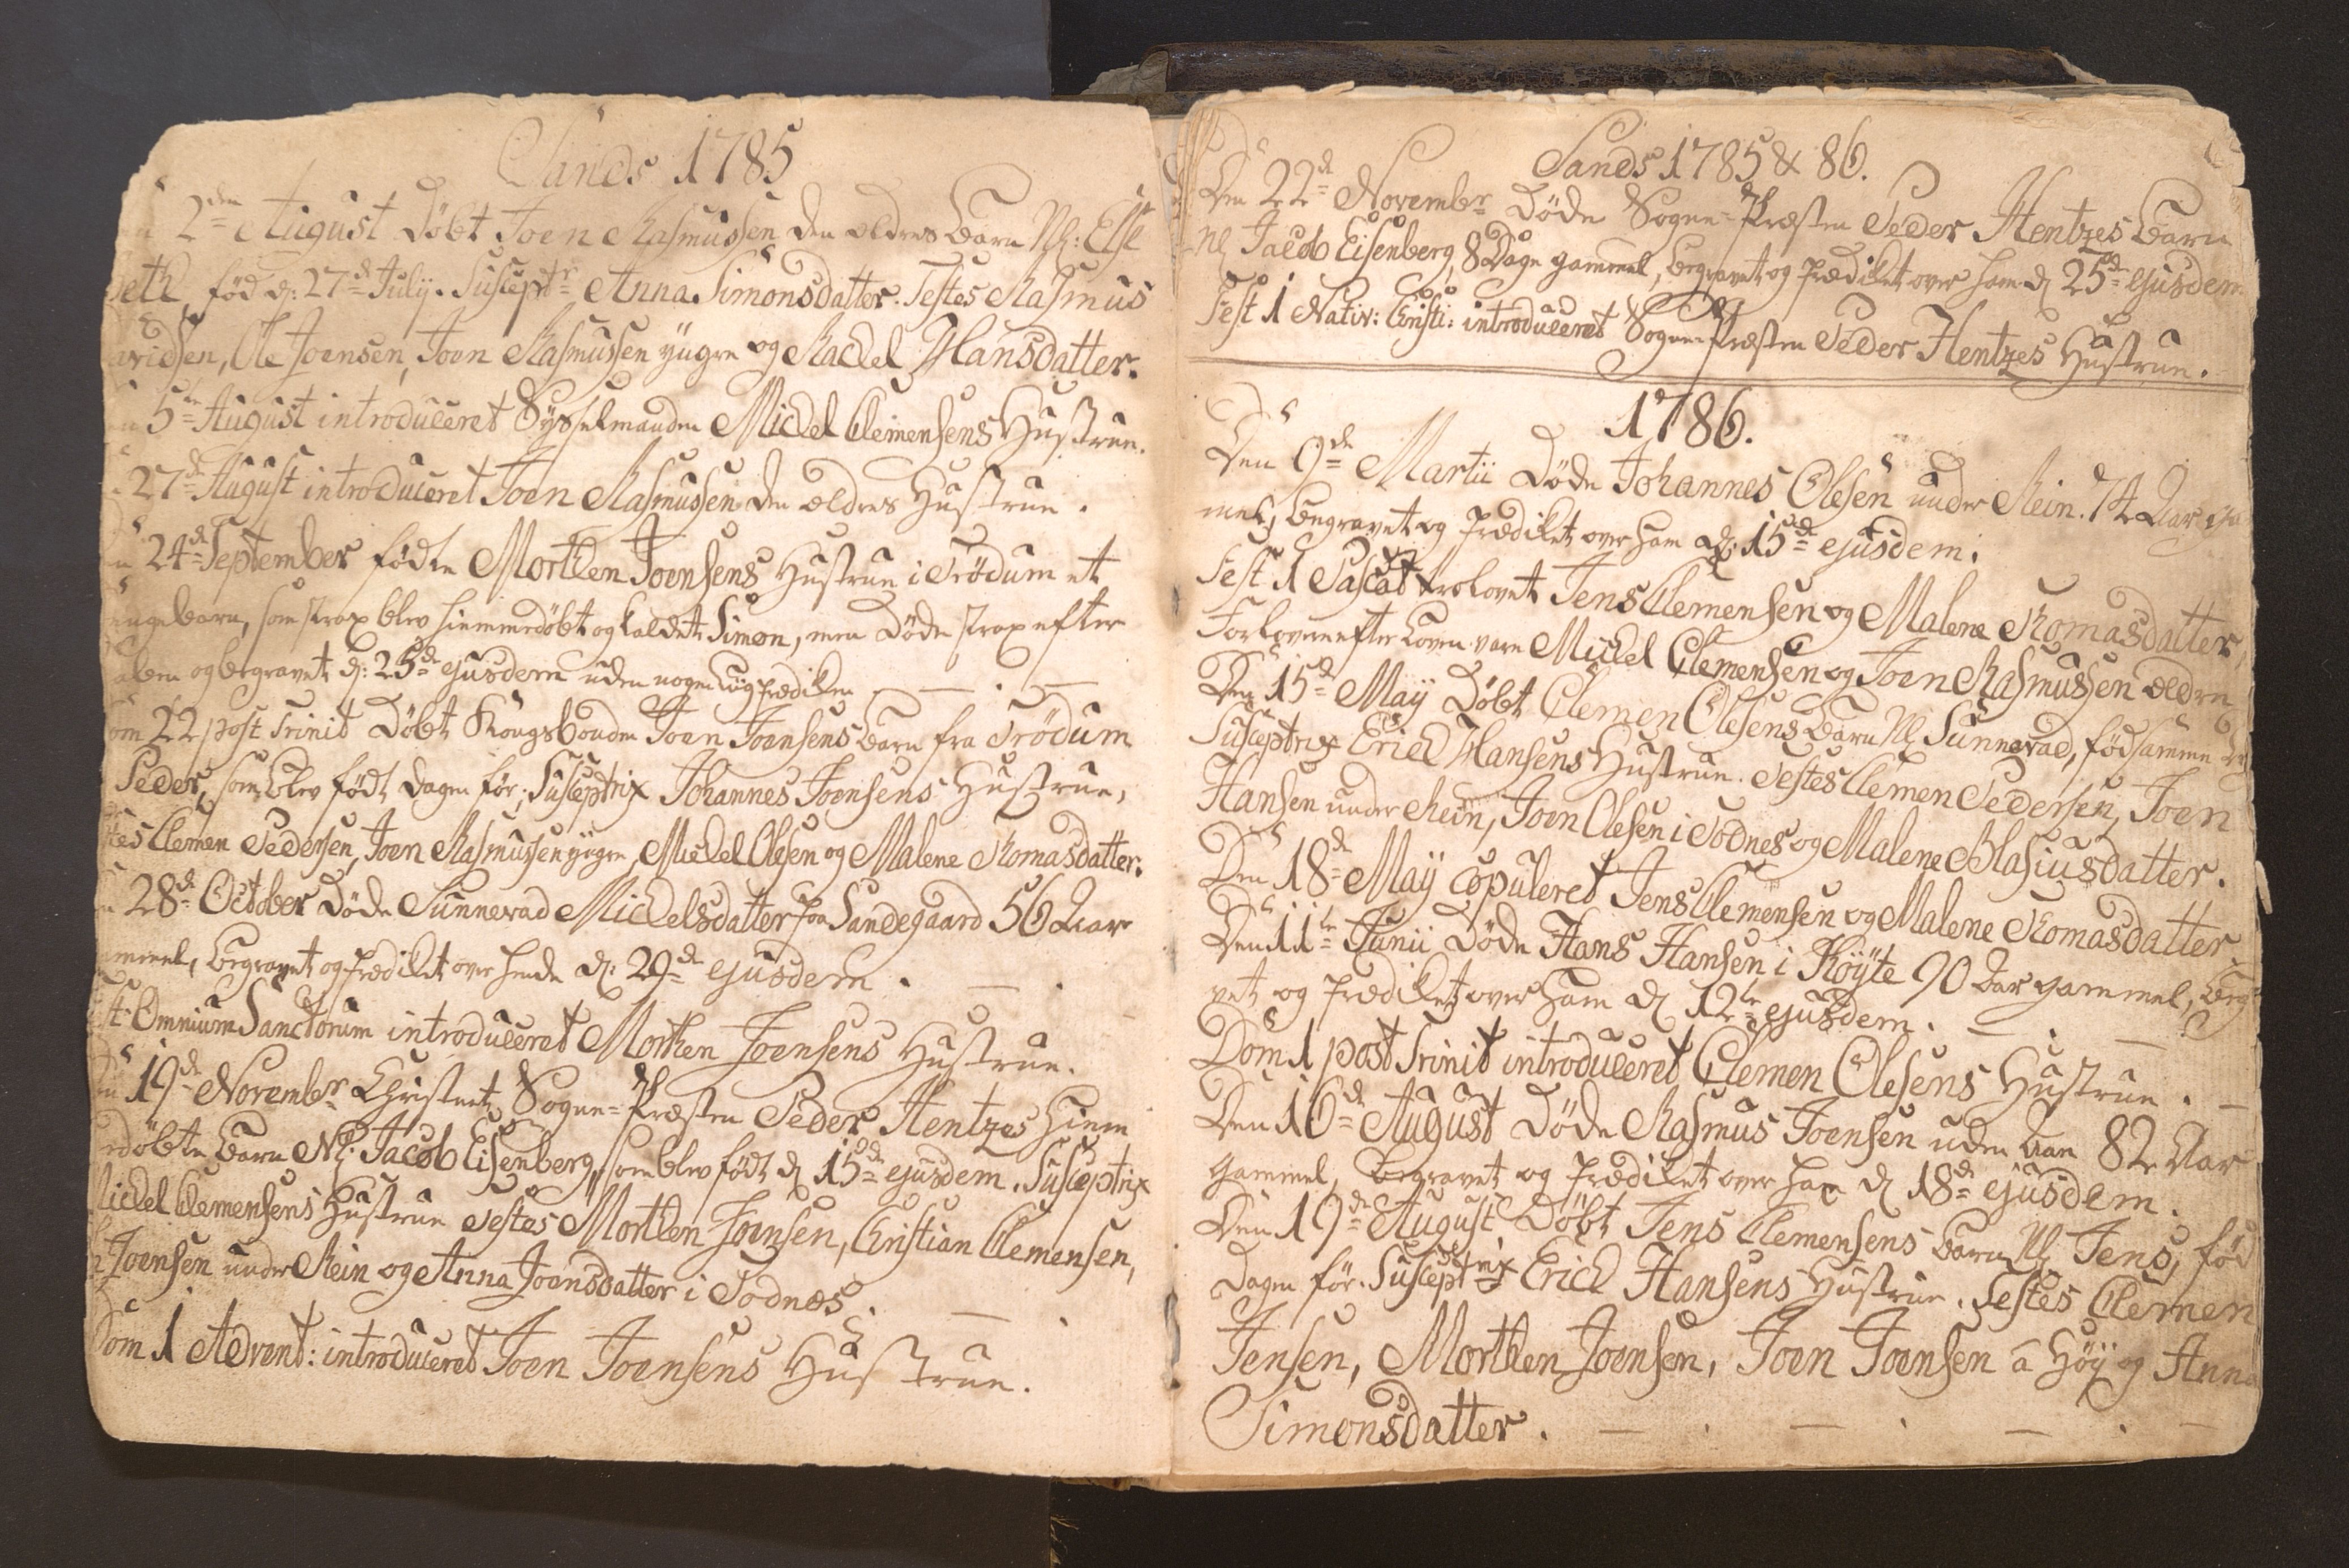 Sands 1785
2den August Döbt Joen Rasmussen den ældres Barn Nl: Else
beth, föd d: 27de Julij. Susceptr Anna Simonsdatter. Testes Rasmus
Davidsen, Ole Joensen, Joen Rasmussen yngre og Rachel Hansdatter.
5te August introduceret Sysselmanden Michel Clemensens Hustrue.
27de August introduceret Joen Rasmussen den ældres Hustrue.
24de September födte Morthen Joensens Hustrue i Trödum et
Drengebarn, som strax blev hiemmedöbt og kaldet Simon, men Döde strax efter
Daaben og begravet d: 25de ejusdem uden nogen Liig Prædiken
Dom 22 post Trinit Döbt Kongsbonden Joen Joensens Barn fra Trödum
Peder, som blev födt dagen för; Susceptrix Johannes Joensens Hustrue,
Testes Clemen Pedersen, Joen Rasmussen yngre, Michel Olesen og Malene Thomasdatter.
28de October Döde Sunnevad Michelsdatter paa Sandegaard 56 Aar
gammel, Begravet og Prædiket over hende d: 29de ejusdem.
Fest. Omnium Sanctorum introduceret Morthen Joensens Hustrue.
Den 19de Novembr Christnet Sogne-Præsten Peder Hentzes Hiem̄
medöbte Barn Nl: Jacob Eisenberg, som blev födt d 15de ejusdem. Susceptrix
Michel Clemensens Hustrue Testes Morthen Joensen, Christian Clemensen,
Joensen under Rein og Anna Joensdatter i Todnæs.
Dom 1 Advent: introduceret Joen Joensens Hustrue.
Sands 1785 & 86.
Den 22de Novembr Döde Sogne-Præsten Peder Hentzes Barn
Nl Jacob Eisenberg, 8 Dage gammel, begravet og Prædiket over ham d 25de ejusdem
Fest 1 Nativ: Christi: introduceret Sogne-Præsten Peder Hentzes Hustrue.
1786.
Den 9de Martii Döde Johannes Olesen under Rein. 74 Aar gam
mel, Begravet og Prædiket over ham d: 15de ejusdem.
Fest 1 Pascat trolovet Jens Clemensen og Malene Thomasdatter,
Forlovere efter Loven vare Michel Clemensen og Joen Rasmussen ældre
Den 15de Maÿ Döbt Clemen Olesens Barn Nl Sunnevad, föd samme Dag
Susceptrix Erich Hansens Hustrue. Testes Clemen Pedersen, Joen
Hansen under Rein, Joen Olesen i Todnes og Malene Blasiusdatter.
Den 18de Maÿ copuleret Jens Clemensen og Malene Thomasdatter.
Den 11te Junii Döde Hans Hansen i Köÿte 90 Aar gammel, Begr
vet og Prædiket over ham d 12te ejusdem.
Dom 1 post Trinit introduceret Clemen Olesens Hustrue.
Den 16de August Döde Rasmus Joensen uden Aae 82 Aar
gammel, begravet og Prædiket over ham d 18de ejusdem.
Den 19de August Döbt Jens Clemensens Barn Nl Jens, föd
Dagen för. Susceptrix Erich Hansens Hustrue. Testes Clemen
Jensen, Morthen Joensen, Joen Joensen a Höÿ og Anna
Simonsdatter.